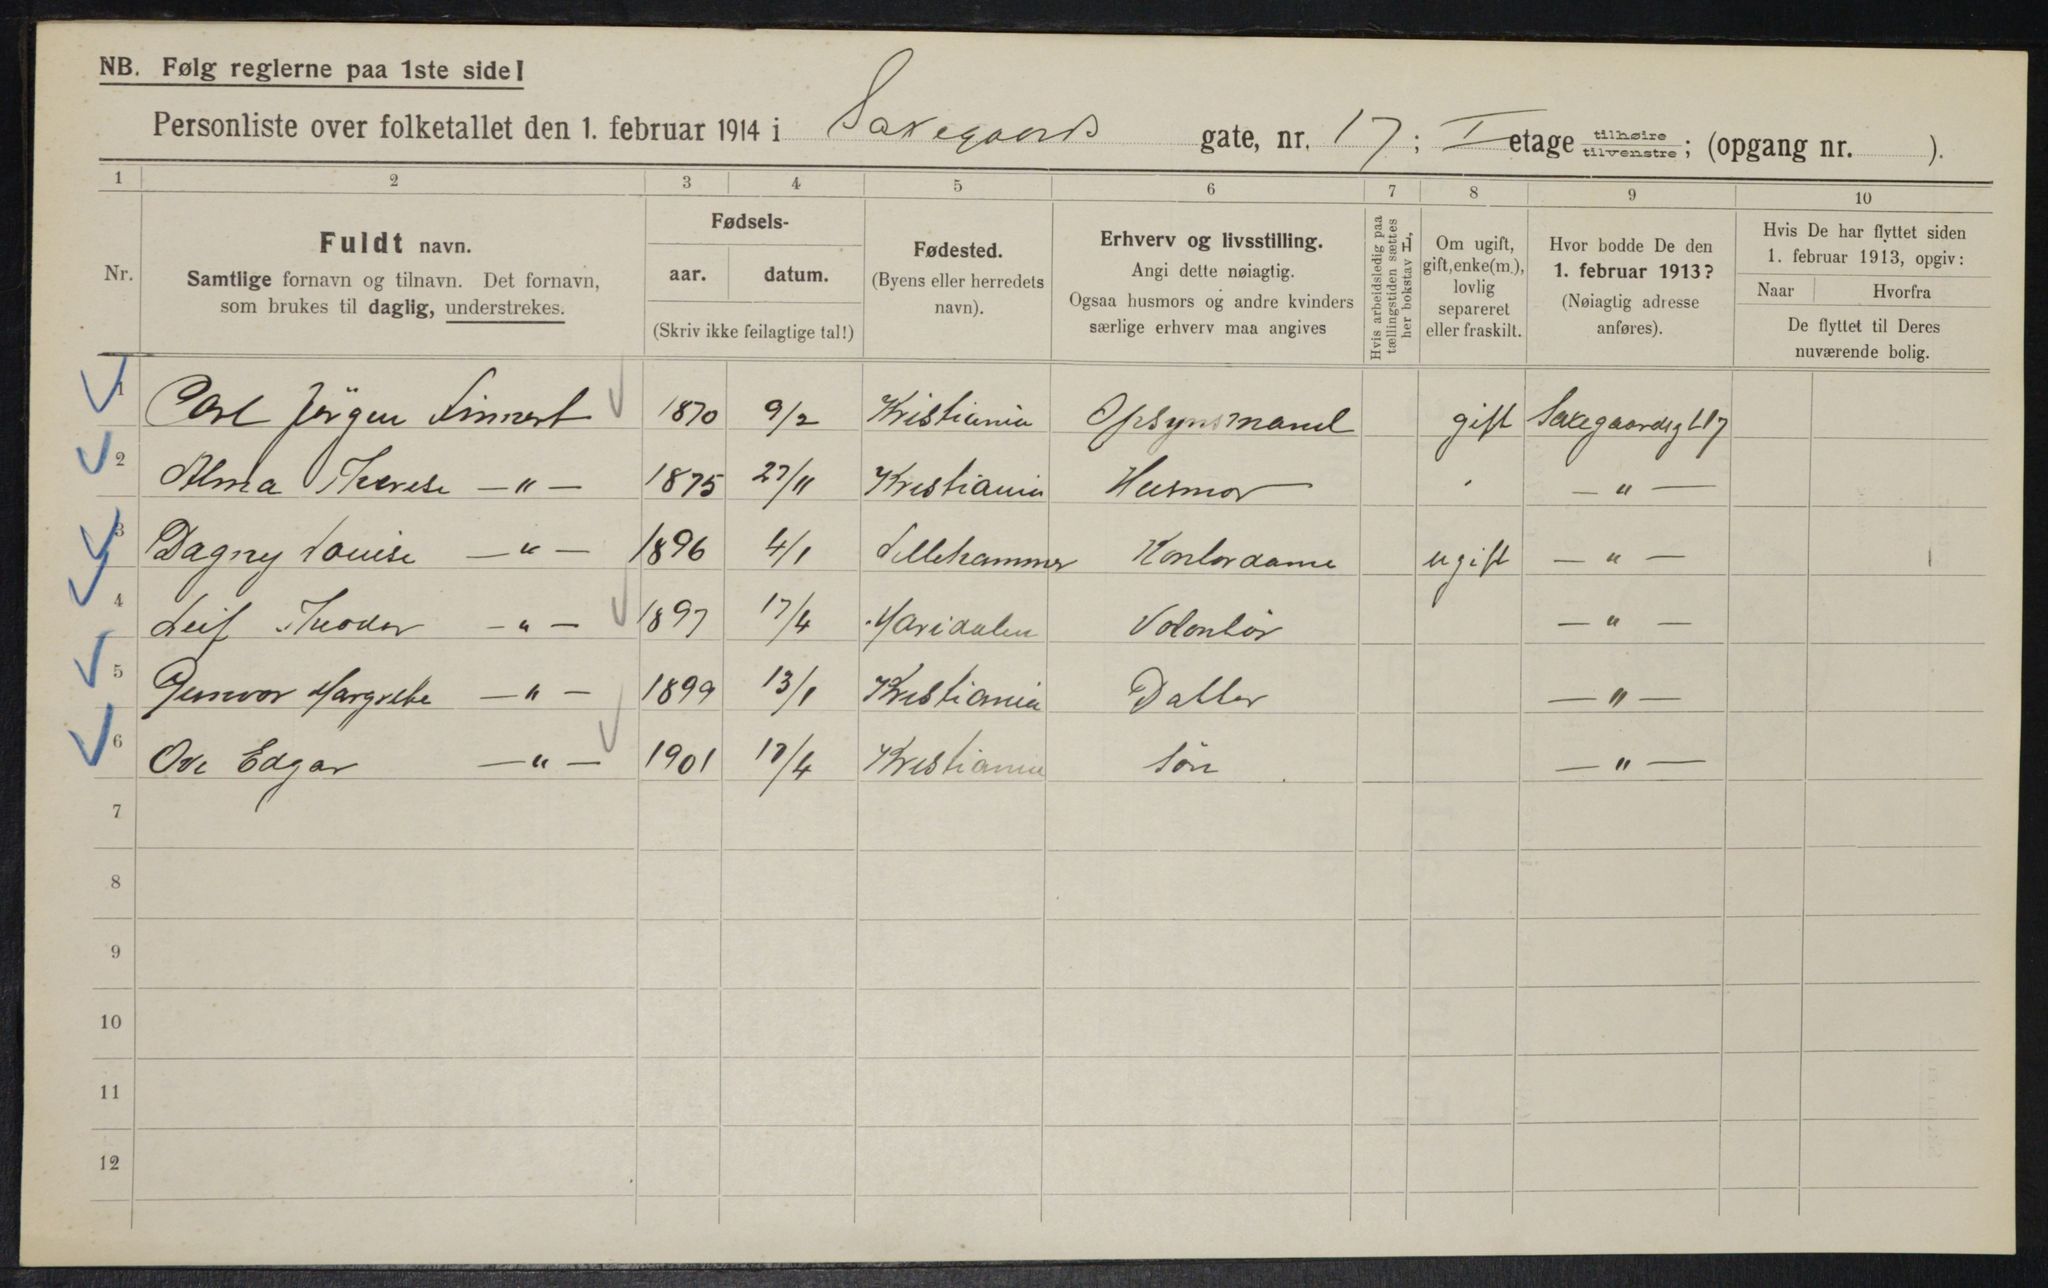 NB. Følg reglerne paa 1ste side!
Personliste over folketallet den 1. februar 1914 i Saxegaards gate, nr. 17; I etage tilhøire tilvenstre; (opgang nr. ).
1 2 3 4 5 6 7 8 9 10
Nr.
Fuldt navn.
Samtlige fornavn og tilnavn. Det fornavn,
som brukes til daglig, understrekes.
Fødsels-
aar. datum.
(Skriv ikke feilagtige tal!)
Fødested.
(Byens eller herredets
navn).
Erhverv og livsstilling.
Angi dette nøiagtig.
Ogsaa husmors og andre kvinders
særlige erhverv maa angives
Hvis arbeidsledig paa
tællingstiden sættes
her bokstav L,
Om ugift,
gift, enke(m.),
lovlig
separeret
eller fraskilt.
Hvor bodde De den
1. februar 1913?
(Nøiagtig adresse
anføres).
Hvis De har flyttet siden
1. februar 1913, opgiv:
Naar Hvorfra
De flyttet til Deres
nuværende bolig.
1 Carl Jörgen 1870 9/2 Kristiania Opsynsmand gift Saxegaardsgt 17
2 Alma Therese —"— 1875 27/11 Kristiania Husmor —"—
3 Dagny Louise —"— 1896 4/1 Lillehammer Kontordame ugift —"—
4 Leif Theodor —"— 1897 17/4 Maridalen Volontör —"—
5 Gunvor Margrethe —"— 1899 13/1 Kristiania Datter —"—
6 Ove Edgar —"— 1901 17/4 Kristiania Sön —"—
7
8
9
10
11
12